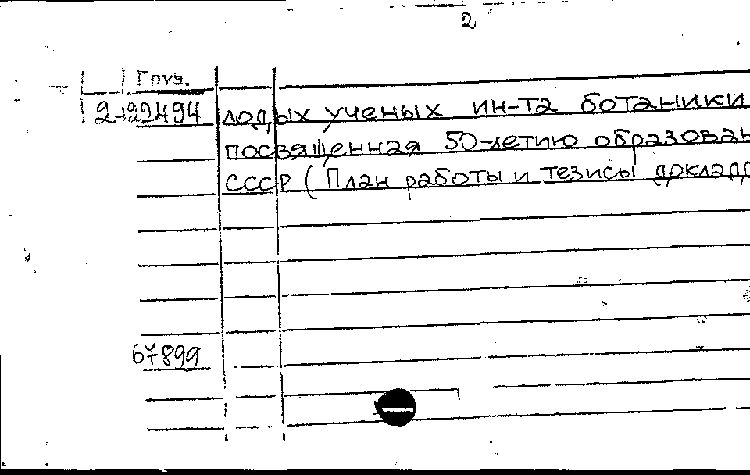 2
Груз.
2-22494 лодых ученых ин-та ботаники
посвященная 50-летию образован
СССР (План работы и тезисы доклад
67899